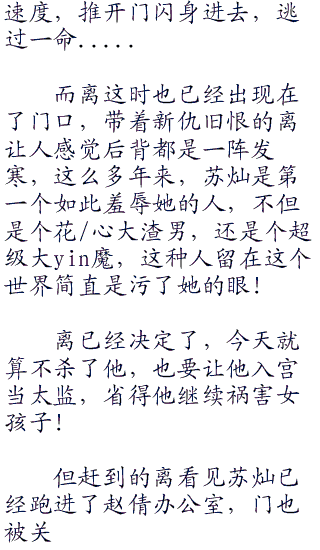 速度，推开门闪身进去，逃
过一命.....
而离这时也已经出现在
了门口，带着新仇旧恨的离
让人感觉后背都是一阵发
寒，这么多年来，苏灿是第
一个如此羞辱她的人，不但
是个花/心大渣男，还是个超
级大yin魔，这种人留在这个
世界简直是污了她的眼！
离已经决定了，今天就
算不杀了他，也要让他入宫
当太监，省得他继续祸害女
孩子！
但赶到的离看见苏灿已
经跑进了赵倩办公室，门也
被关